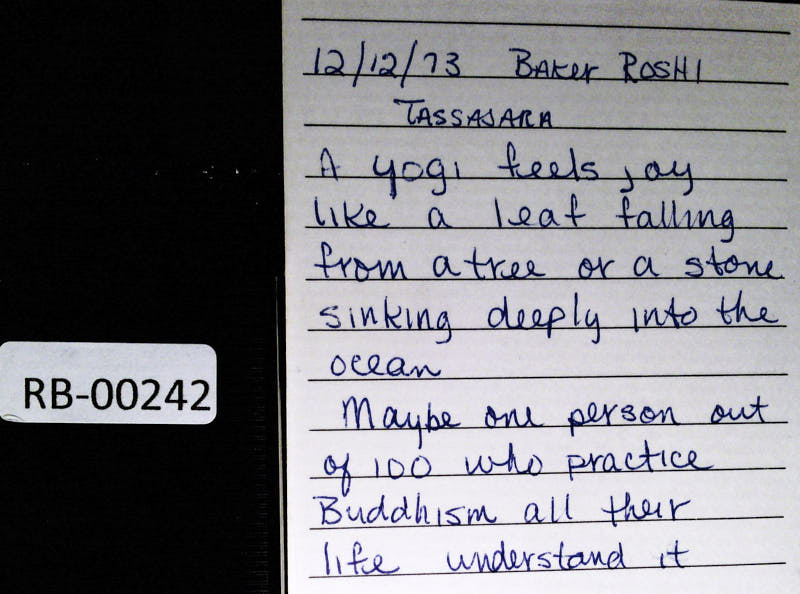 12/12/73 Baker ROSHI
TASSAJARA
A yogi feels joy
like a leaf falling
from a tree or a stone
sinking deeply into the
ocean
Maybe one person out
of 100 who practice
Buddhism all their
life understand it
RB-00242